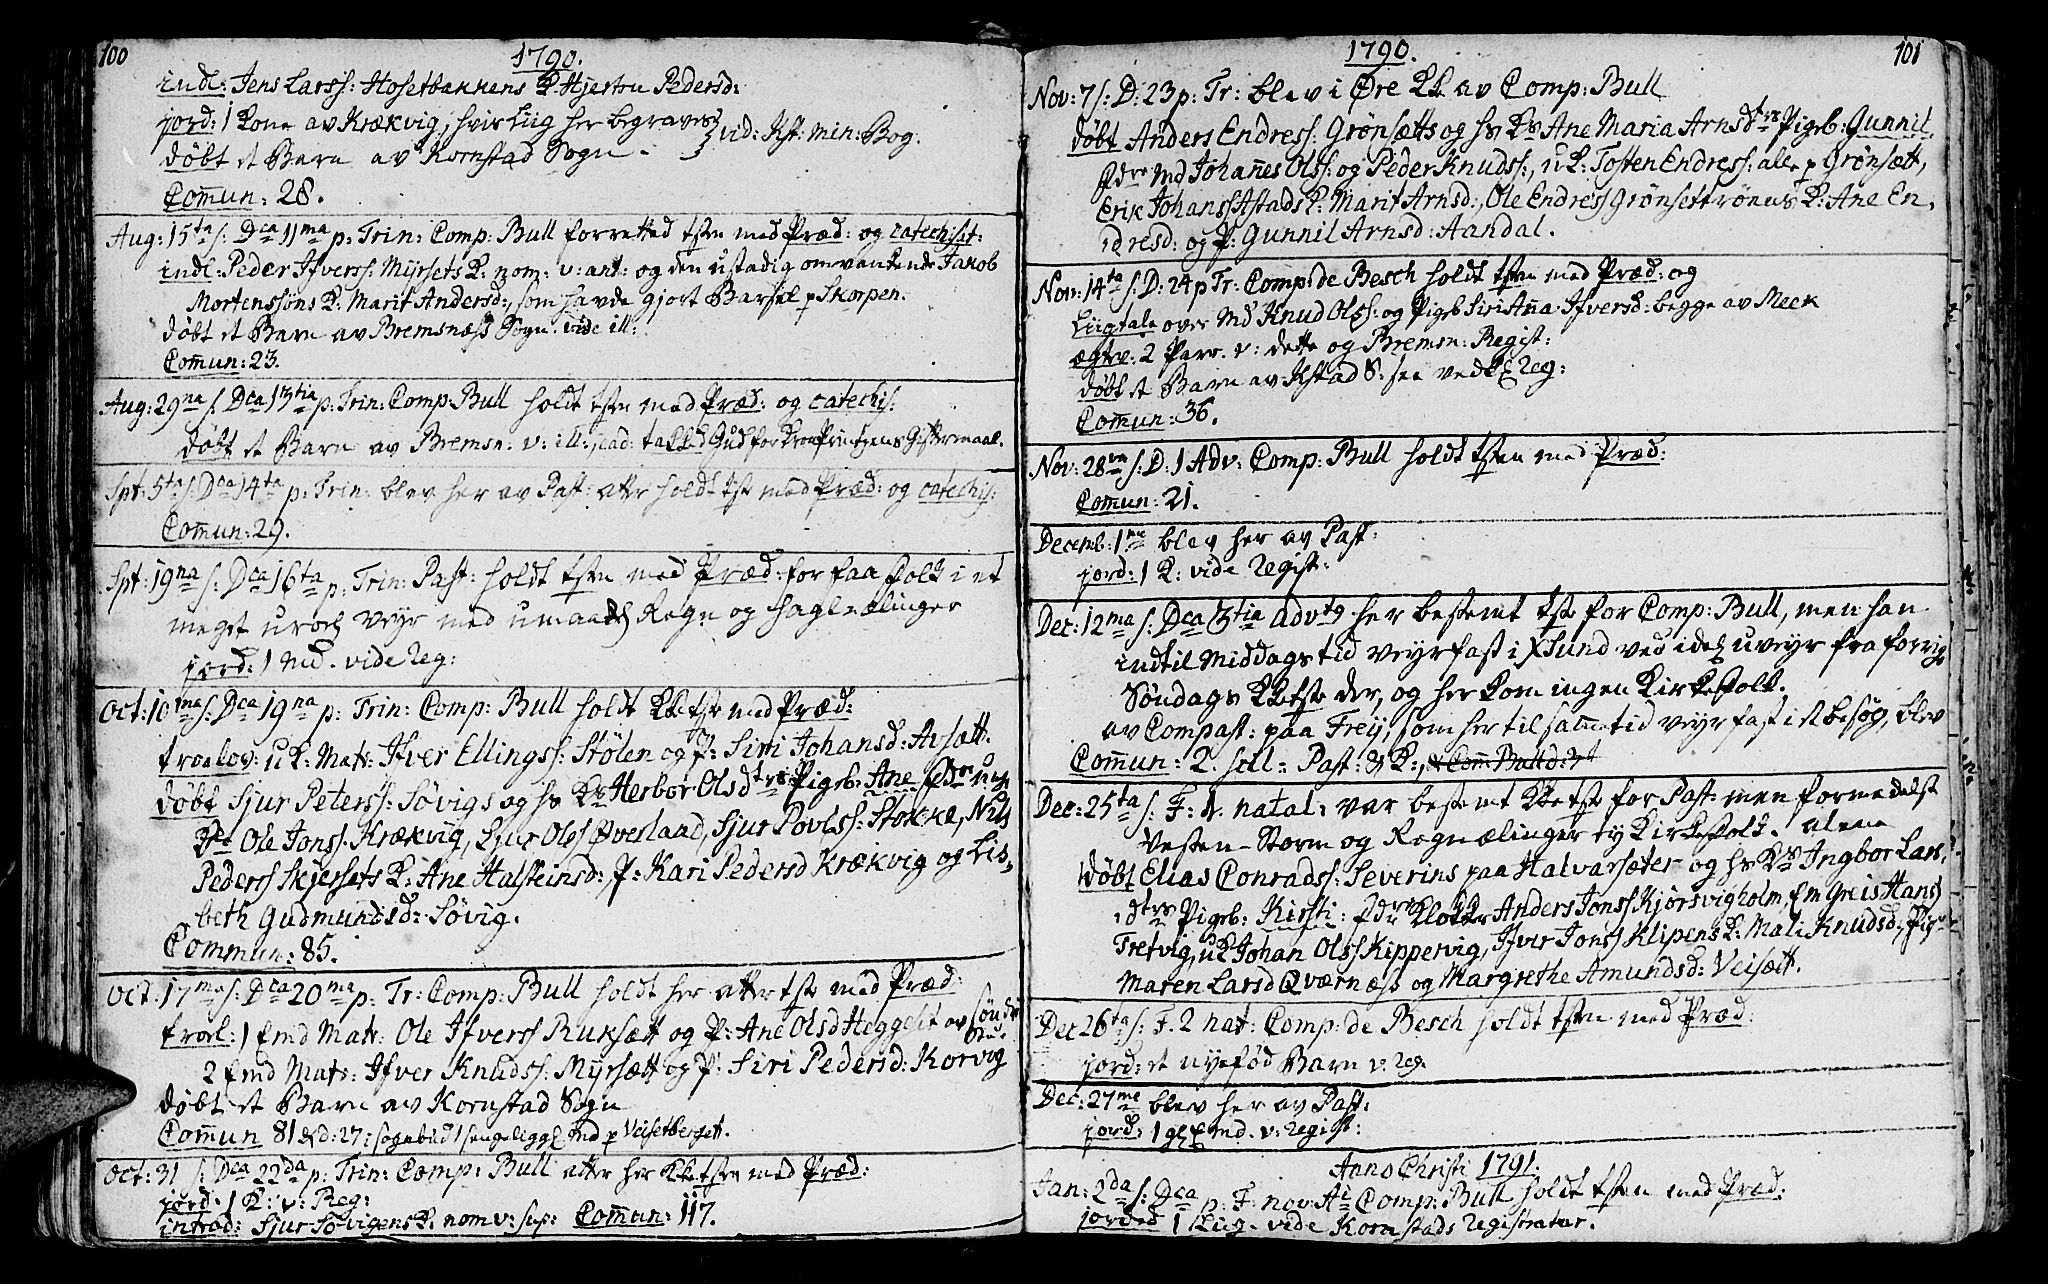 100
1790.
indl: Jens Larss: Hosetbakkens K: Hjerton Pedersd:
jord: 1 Kone av Krækvig, hvis Liig her begraves } vid: Kst: min: Bog.
døbt et Barn av Kornstad Sogn.
Com̄un: 28.
Aug: 15ta s: Dca 11ma p: Trin: Comp: Bull forretted tsten med Præd: og catechis:
indl: Peder Ifverss: Myrsets K: nom: v: ant: og den ustadig omvankende Jakob
Mortenssøns K: Marit Andersd:, som havde gjort Barsel p Skorpen.
døbt et Barn av Bremsnæss Sogn. vide ill:
Com̄un: 23.
Aug: 29na s: Dca 13tia p: Trin: Comp: Bull holdt tsten med Præd: og catechis:
døbt et Barn av Bremsn: v: ill:, ead: takked Gud for Kron Printzens Giftermaal.
Spt: 5ta s: Dca 14ta p: Trin: blev her av Past: atter holdt tste med Præd: og catechis:
Com̄un: 29.
Spt: 19na s: Dca 16ta p: Trin: Past: holdt tsten med Præd: for faa Folk i et
meget uroel Veyr med umaadel Regn og Haglælinger
jord: 1 Md. vide Reg:
Oct: 10ma s: Dca 19na p: Trin: Comp: Bull holdt KKetste med Præd:
troelov: u K: Mats: Ifver Ellingss: Stølen og P: Siri Johansd: Aʋsætt.
døbt Sjur Peterss: Søvigs og hs Ks Herbor Olsdtrs Pigeb: Ane
Ole Jonss: Krækvig, Sjur Olss Øverland, Sjur Povlss: Stokke, Nils
Pederss Skjersets K: Ane Halsteinsd:, P: Kari Pedersd Krækvig og Lis-
beth Gudmundsd: Søvig.
Commun: 85.
Oct: 17ma s: Dca 20ma p: Tr: Comp: Bull holdt her atter tste med Præd:
troel: 1 Emd Mats: Ole Ifverss Ruksætt og P: Ane Olsd Heggeset av sønder
2 Emd Mats: Ifver Knudss: Myrsætt og P: Siri Pedersd: Korvig
døbt et Barn av Kornstad Sogn
Com̄un 81 sognebud 1 sengeligge Md p Veisetberget.
Oct: 31 s: Dca 22da p: Trin: Comp: Bull atter her KKetsten med Præd:
jord: 1 K: v: Reg:
introd: Sjur Søvigens K: nom v: sup: Com̄un: 117.
1790.
101
Nov: 7 s: D: 23 p: Tr: blev i Øre KK av Comp: Bull
døbt Anders Endress: Grønsætts og hs Ks Ane Maria Arnsdtrs Pigeb: Gunnil.
Fdre Md Johan̄es Olss: og Peder Knudss:, u K: Tosten Endress: alle p Grønsætt,
Erik Johanss Astads K: Marit Arnsd:, Ole Endress Grønsettrøens K: Ane En-
dresd: og P: Gunnil Arnsd: Aandal.
Nov: 14ta s: D: 24 p Tr: Comp: de Besch holdt tsten med Præd: og
Liigtale over Md Knud Olss: og Pigeb Siri An̄a Ifversd: begge av Meek
ægtv: 2 Parr. v: dette og Bremsn: Regist:
døbt et Barn av Kstad S: see vedk Reg:
Com̄un: 36.
Nov: 28va s: D: 1 Adv: Comp: Bull holdt tsten med Præd:
Com̄un: 21.
Decemb: 1ma blev her av Past:
jord: 1 K: vide Regist:
Dec: 12ma s: Dca 3tia Advts her bestemt tste for Comp: Bull, men han
indtil Middagstid Veyrfast i XSund ved idel uveyr fra forrige
Søndags KKetste der, og her kom ingen Kirkefolk.
av Compast: paa Freij, som her til sam̄e tid veyrfast i et besøg, blev
Com̄un: 2. scil: Past: & K:,
Dec: 25ta s: F: 1. natal: var bestemt KKetste for Past: men formedelst
Vesten-Storm og Regnælinger ey Kirkefolk. alene
døbt Elias Conradss: Severins paa Halvarsæter og hs Ks Ingbor Lars-
dtrs Pigeb: Kirsti: Fdre Klokker Anders Jonss Kjørsvigholm, Em Greis Hanss
Tretvig, u K Johan Olss Kippervig, Ifver Jonss Klipens K: Mali Knudsd:, Pig-
Maren Larsd Qværnæss og Margrethe Amundsd: Veisætt.
Dec 26ta s: F. 2 nat: Comp: de Besch holdt tsten med Præd:
jord: et nyefød Barn v: Reg.
Dec: 27me blev her av Past:
jord: 1 gl Emd. v: Regist:
Anno Christi 1791.
Jan: 2da s: Dca p: F: nov: Ai Comp: Bull holdt tsten med Præd:
jorded 1 Liig. vide Kornstads Registratur.